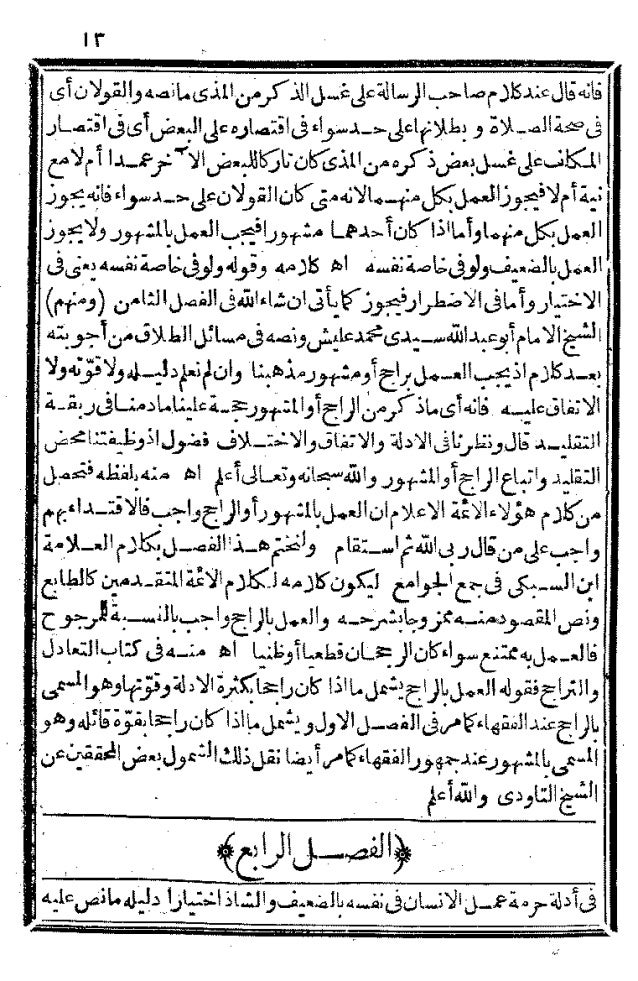 ١٣
فانه قال عند كلام صاحب الرسالة على غسل الذكر من المذى ما نصه والقولان أى
فى صحة الصلاة و بطلانها على حد سواء فى اقتصاره على البعض أى فى اقتصار
المكلف على غسل بعض ذكره من المذى كان تاركا للبعض الآخر عمدا أم لا مع
نية أم لا فيجوز العمل بكل منهما لانه متى كان القولان على حد سواء فانه يجوز
العمل بكل منهما وأما اذا كان أحدهما مشهورا فيجب العمل بالمشهور ولا يجوز
العمل بالضعيف ولو فى خاصة نفسه اه كلامه وقوله ولو فى خاصة نفسه يعنى فى
الاختيار وأما فى الاضطرار فيجوز كما يأتى ان شاء الله فى الفصل الثامن (ومنهم)
الشيخ الامام أبو عبد الله سيدى محمد عليش ونصه فى مسائل الطلاق من أجوبته
بعد كلام اذ يجب العمل براجح أو مشهور مذهبنا وان لم نعلم دليله ولا قوّته ولا
الاتفاق عليه فانه أى ما ذكر من الراجح أو المشهور حجة علينا ما دمنا فى ربقة
التقليد قال ونظرنا فى الادلة والاتفاق والاختلاف فضول اذ وظيفتنا محض
التقليد واتباع الراجح أو المشهور والله سبحانه وتعالى أعلم اه منه بلفظه فتحصل
من كلام هؤلاء الائمة الاعلام ان العمل بالمشهور أو الراجح واجب فالاقتداء بهم
واجب على من قال ربى الله ثم استقام ولنختم هذا الفصل بكلام العلامة
ابن السبكى فى جمع الجوامع ليكون كلامه لكلام الائمة المتقدمين كالطابع
ونص المقصود منه ممزوجا بشرحه والعمل بالراجح واجب بالنسبة للمرجوح
فالعمل به ممتنع سواء كان الرجحان قطعيا أو ظنيا اه منه فى كتاب التعادل
والتراجح فقوله العمل بالراجح يشمل ما اذا كان راجحا بكثرة الادلة وقوّتها وهو المسمى
بالراجح عند الفقهاء كما مر فى الفصل الاول ويشمل ما اذا كان راجحا بقوّة قائله وهو
المسمى بالمشهور عند جمهور الفقهاء كما مر أيضا نقل ذلك الشمول بعض المحققين عن
الشيخ التاودى والله أعلم
﴿الفصل الرابع﴾
فى أدلة حرمة عمل الانسان فى نفسه بالضعيف والشاذ اختيارا دليله ما نص عليه